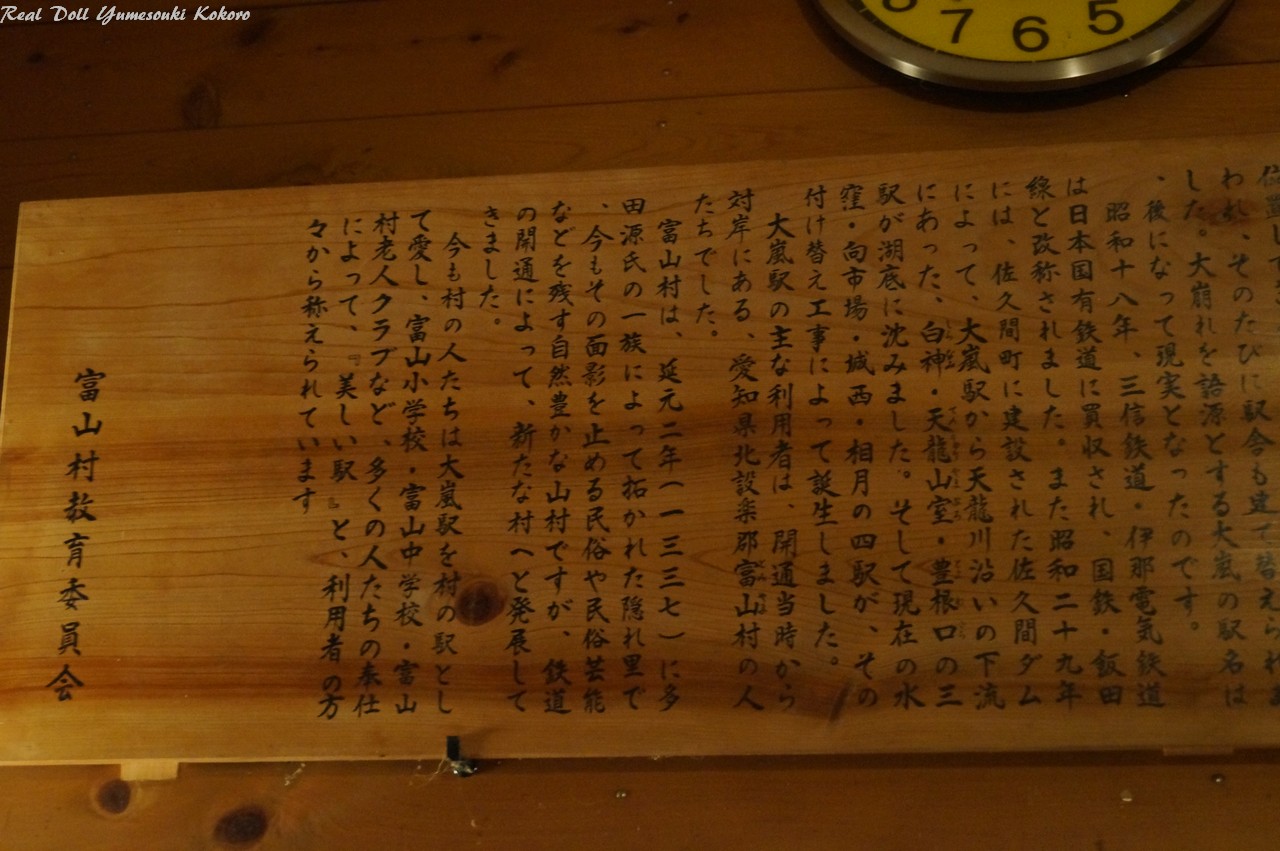 Real Doll Yumesouki Kokoro
7 6 5
われ、そのたびに駅舎も建て替えられま
した。大崩れを語源とする大嵐の駅名は
、後になって現実となったのです。
昭和十八年、三信鉄道・伊那電気鉄道
は日本国有鉄道に買収され、国鉄・飯田
線と改称されました。また昭和二十九年
には、佐久間町に建設された佐久間ダム
によって、大嵐駅から天龍川沿いの下流
にあった、白神・天龍山室・豊根口の三
駅が湖底に沈みました。そして現在の水
窪・向市場・城西・相月の四駅が、その
付け替え工事によって誕生しました。
大嵐駅の主な利用者は、開通当時から
対岸にある、愛知県北設楽郡富山村の人
たちでした。
富山村は、延元二年(一三三七)に多
田源氏の一族によって拓かれた隠れ里で
、今もその面影を止める民俗や民俗芸能
などを残す自然豊かな山村ですが、鉄道
の開通によって、新たな村へと発展して
きました。
今も村の人たちは大嵐駅を村の駅とし
て愛し、富山小学校・富山中学校・富山
村老人クラブなど、多くの人たちの奉仕
によって、『美しい駅』と、利用者の方
々から称えられています
富山村教育委員会